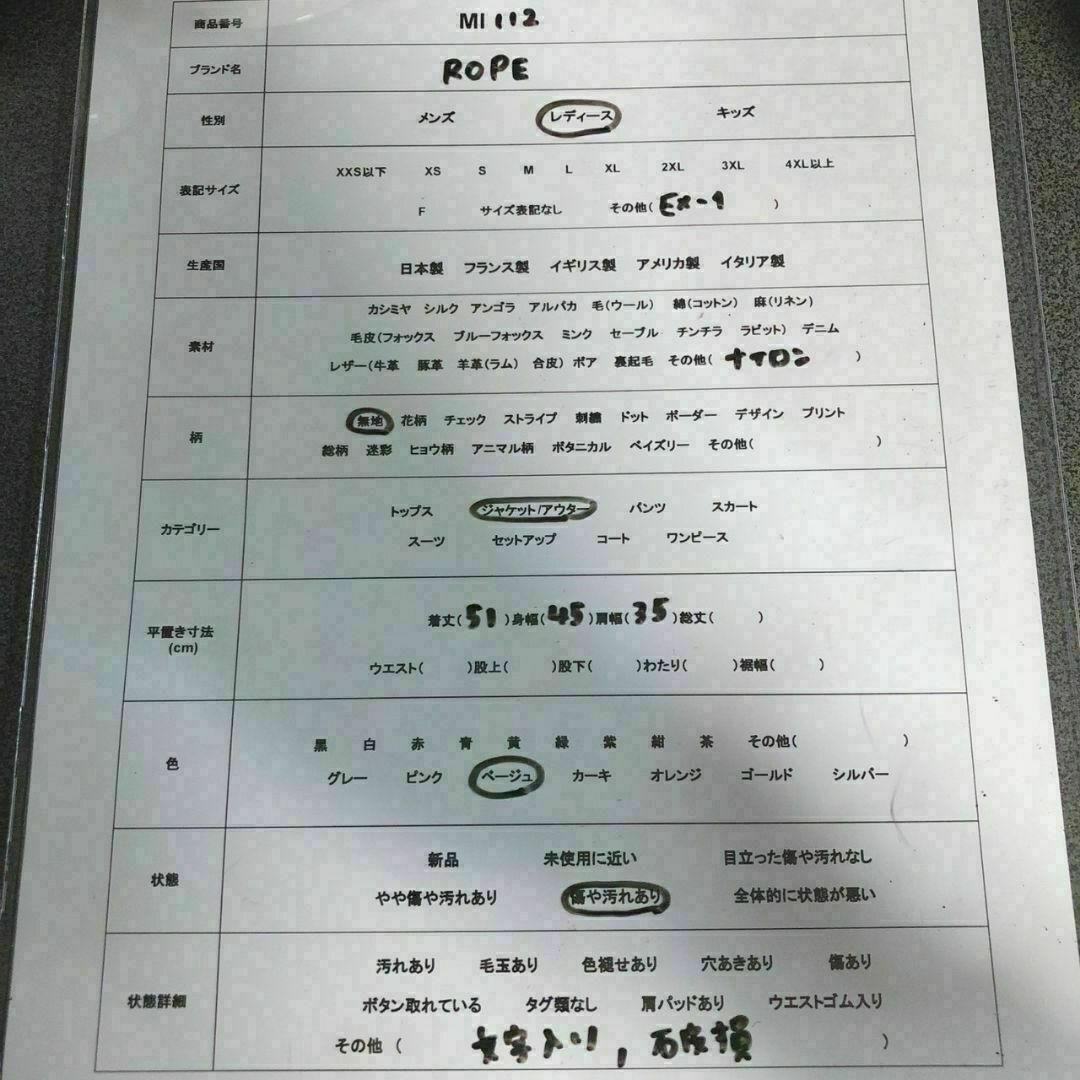 商品番号 MI 112
ブランド名 ROPE
性別 メンズ レディース キッズ
表記サイズ XXS以下 XS S M L XL 2XL 3XL 4XL以上
F サイズ表記なし その他( EX-1 )
生産国 日本製 フランス製 イギリス製 アメリカ製 イタリア製
素材 カシミヤ シルク アンゴラ アルパカ 毛(ウール) 綿(コットン) 麻(リネン)
毛皮(フォックス ブルーフォックス ミンク セーブル チンチラ ラビット) デニム
レザー(牛革 豚革 羊革(ラム) 合皮) ボア 裏起毛 その他( ナイロン )
柄 無地 花柄 チェック ストライプ 刺繍 ドット ボーダー デザイン プリント
総柄 迷彩 ヒョウ柄 アニマル柄 ボタニカル ペイズリー その他( )
カテゴリー トップス ジャケット/アウター パンツ スカート
スーツ セットアップ コート ワンピース
平置き寸法 着丈(51)身幅(45)肩幅(35)総丈( )
(cm) ウエスト( )股上( )股下( )わたり( )裾幅( )
色 黒 白 赤 青 黄 緑 紫 紺 茶 その他( )
グレー ピンク ベージュ カーキ オレンジ ゴールド シルバー
状態 新品 未使用に近い 目立った傷や汚れなし
やや傷や汚れあり 傷や汚れあり 全体的に状態が悪い
状態詳細 汚れあり 毛玉あり 色褪せあり 穴あきあり 傷あり
ボタン取れている タグ類なし 肩パッドあり ウエストゴム入り
その他 ( 文字入り, 破損 )